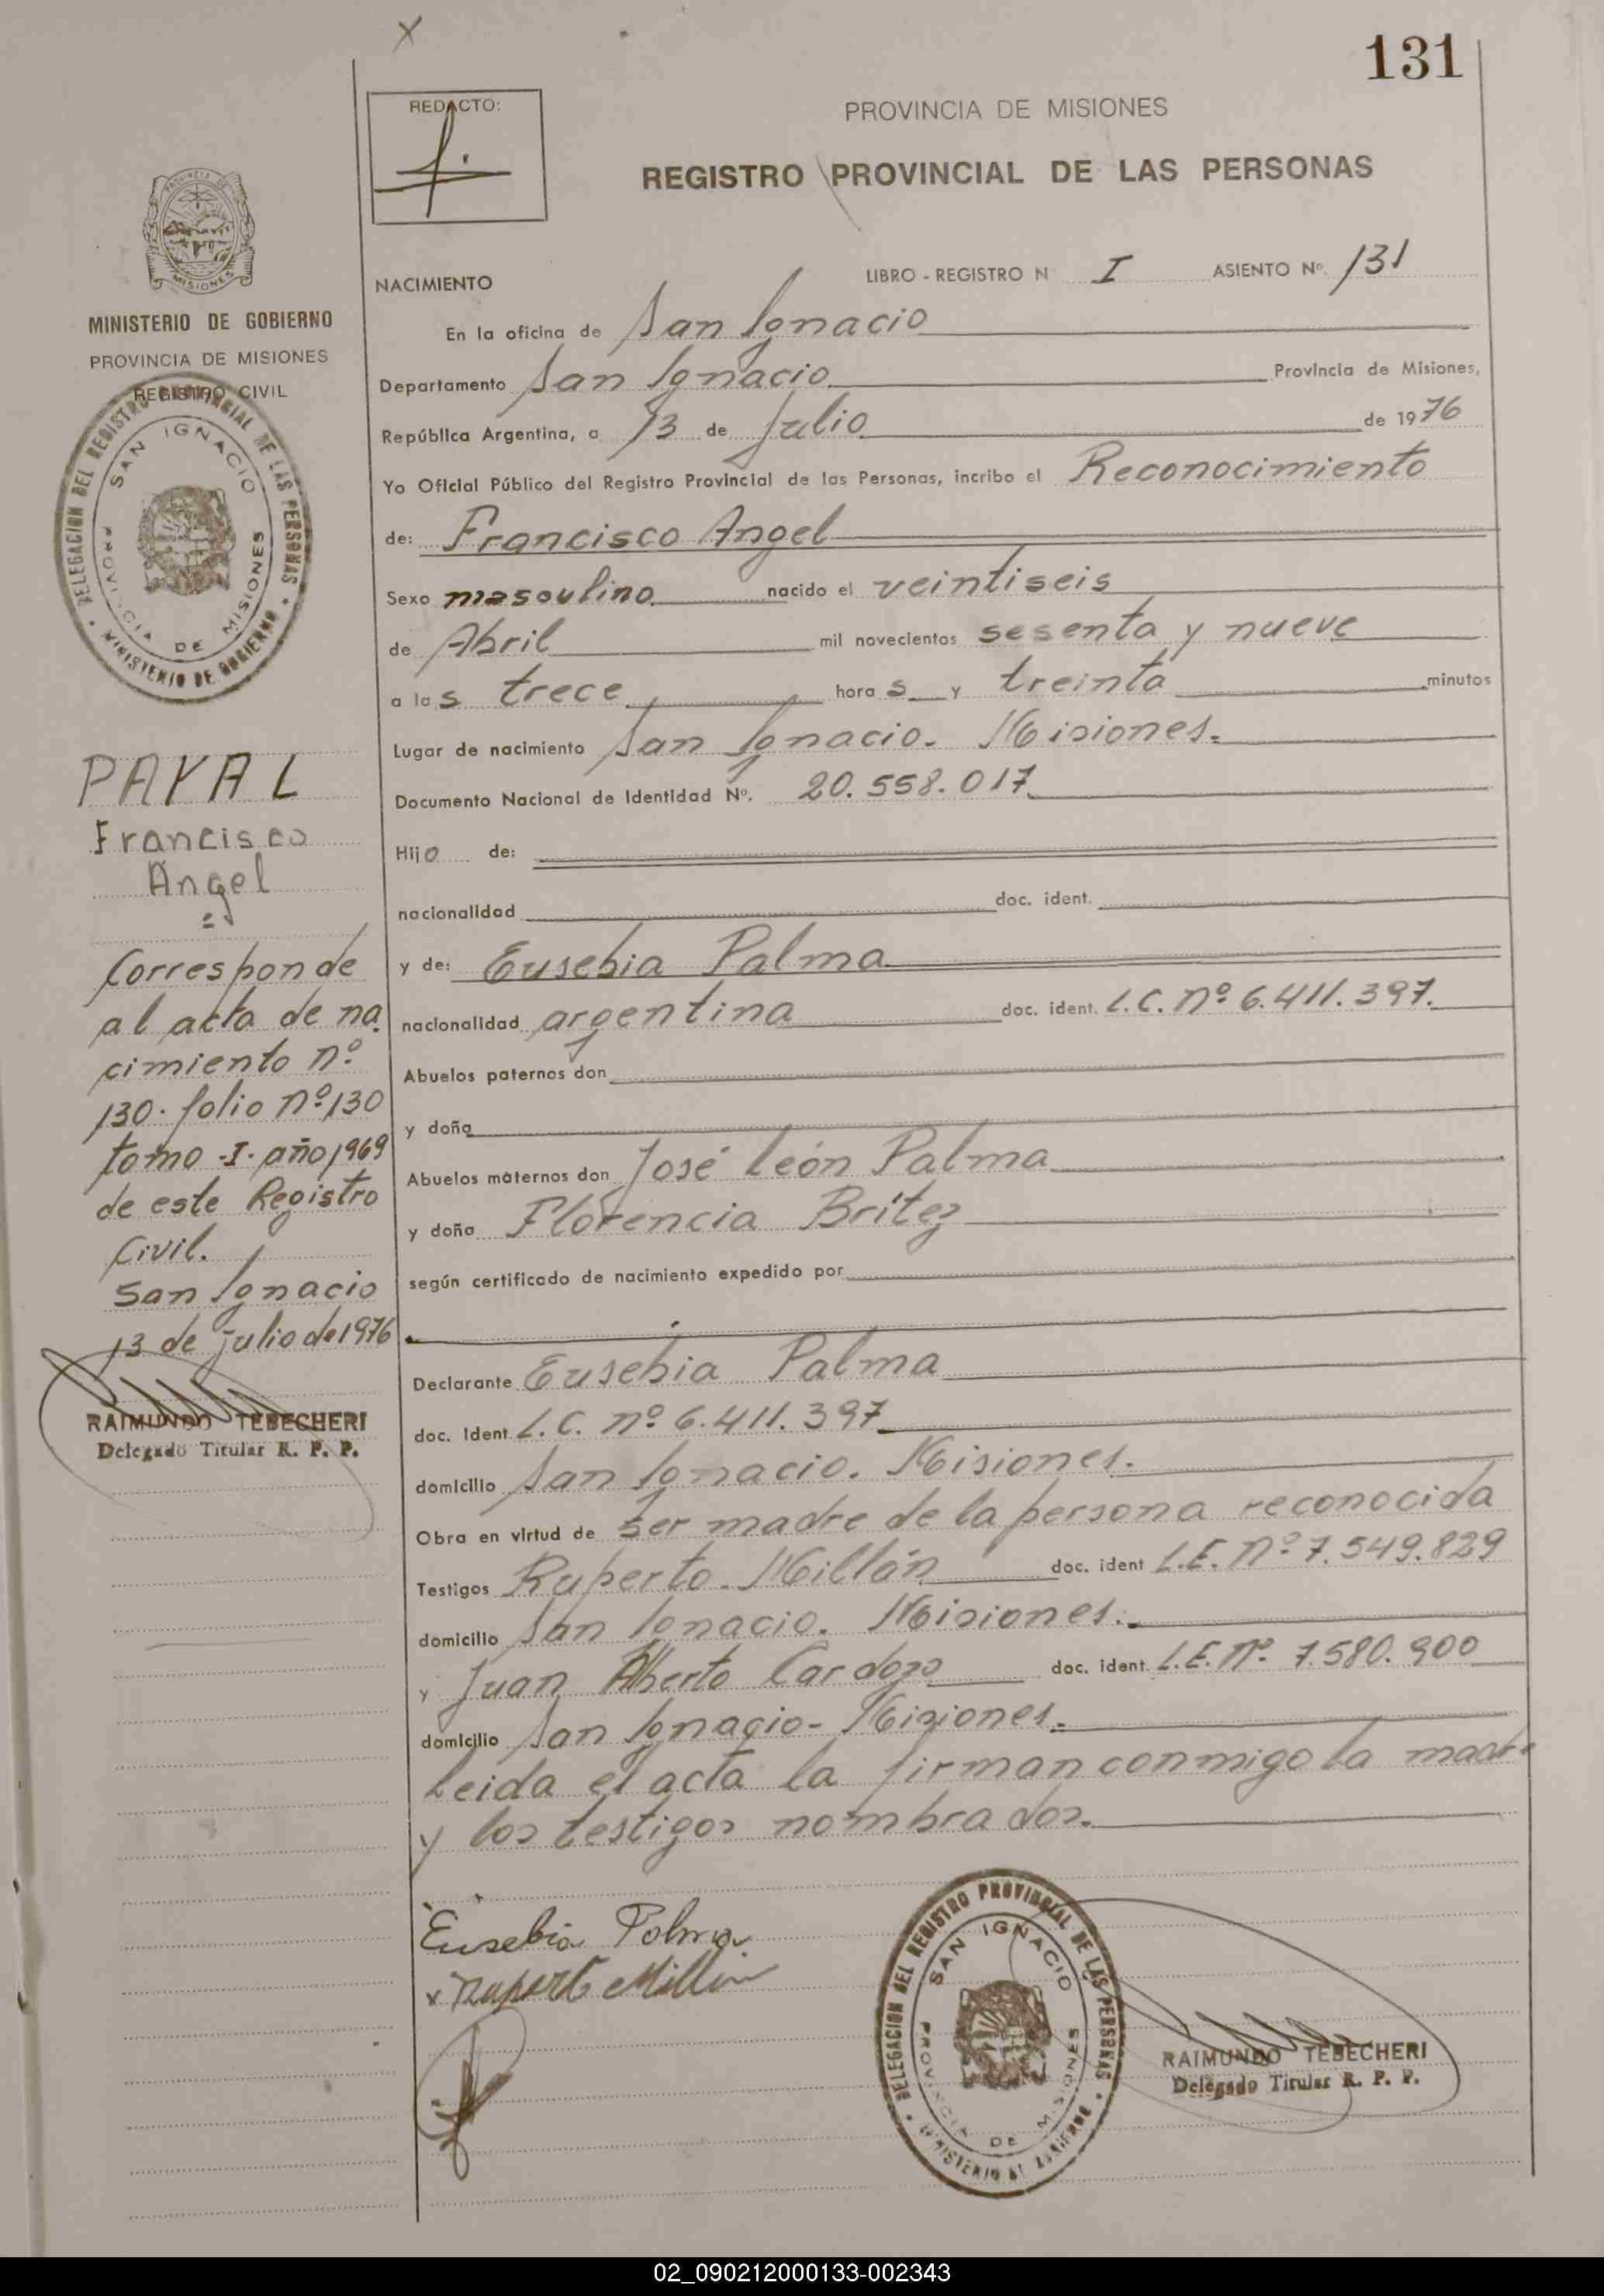 131
REDACTO:
PROVINCIA DE MISIONES
REGISTRO PROVINCIAL DE LAS PERSONAS
PROVINCIA DE
MISIONES
MINISTERIO DE GOBIERNO
PROVINCIA DE MISIONES
REGISTRO CIVIL
DELEGACION DEL REGISTRO PROVINCIAL DE LAS PERSONAS
SAN IGNACIO
PROVINCIA DE MISIONES
MINISTERIO DE GOBIERNO
PAYAL
Francisco
Angel
Corresponde
al acta de na
cimiento nº
130. folio nº 130
tomo -I- año 1969
de este Registro
Civil.
San Ignacio
13 de julio de 1976
RAIMUNDO TEBECHERI
Delegado Titular R. P. P.
NACIMIENTO LIBRO - REGISTRO N I ASIENTO Nº 131
En la oficina de San Ignacio
Departamento San Ignacio Provincia de Misiones,
República Argentina, a 13 de Julio de 1976
Yo Oficial Público del Registro Provincial de las Personas, incribo el Reconocimiento
de: Francisco Angel
Sexo masculino nacido el veintiseis
de Abril mil novecientos sesenta y nueve
a las trece horas y treinta minutos
Lugar de nacimiento San Ignacio. Misiones.
Documento Nacional de Identidad Nº. 20.558.017
Hijo de:
nacionalidad doc. ident.
y de: Eusebia Palma
nacionalidad argentina doc. ident. L.C. nº 6.411.397.
Abuelos paternos don
y doña
Abuelos maternos don José León Palma
y doña Florencia Britez
según certificado de nacimiento expedido por
Declarante Eusebia Palma
doc. Ident. L.C. nº 6.411.397
domicilio San Ignacio. Misiones.
Obra en virtud de ser madre de la persona reconocida
Testigos Ruperto Millán doc. ident L.E. nº 7.549.829
domicilio San Ignacio. Misiones.
y Juan Alberto Cardozo doc. ident. L.E. nº 7.580.900
domicilio San Ignacio- Misiones.
Leida el acta la firman conmigo la madre
y los testigos nombrados.
Eusebia Palma
x Ruperto Millán
DELEGACION DEL REGISTRO PROVINCIAL DE LAS PERSONAS
SAN IGNACIO
PROVINCIA DE MISIONES
MINISTERIO DE GOBIERNO
RAIMUNDO TEBECHERI
Delegado Titular R. P. P.
02_090212000133-002343